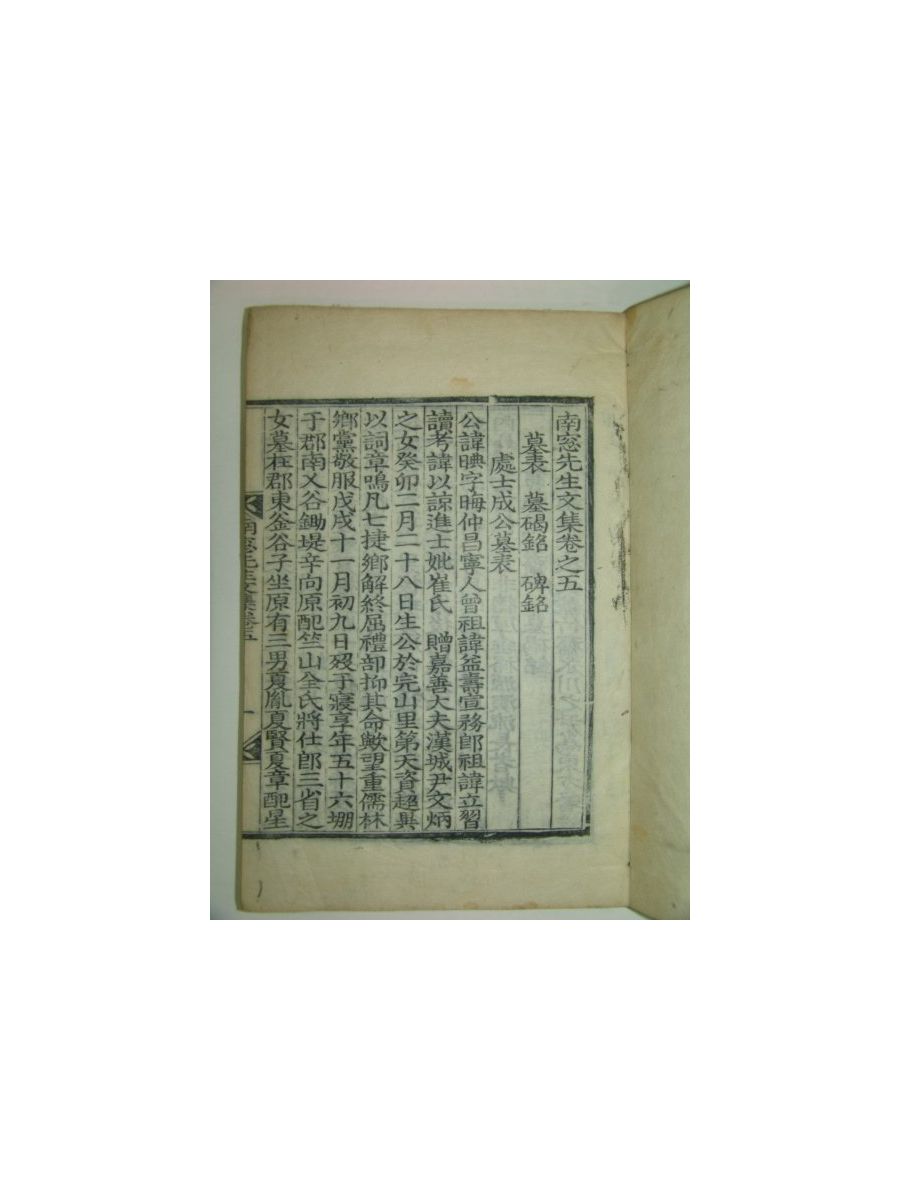 南窓先生文集卷之五
墓表 墓碣銘 碑銘
處士成公墓表
公諱㬇字晦仲昌寧人曾祖諱益壽宣務郎祖諱立習
讀考諱以諒進士妣崔氏 贈嘉善大夫漢城尹文炳
之女癸卯二月二十八日生公於完山里第天資超異
以詞章鳴凡七捷鄕解終屈禮部抑其命歟望重儒林
鄕黨敬服戊戌十一月初九日歿于寢享年五十六堋
于郡南乂谷鋤堤辛向原配竺山全氏將仕郎三省之
女墓在郡東釜谷子坐原有三男夏胤夏賢夏章配星
南窓先生文集卷五 一